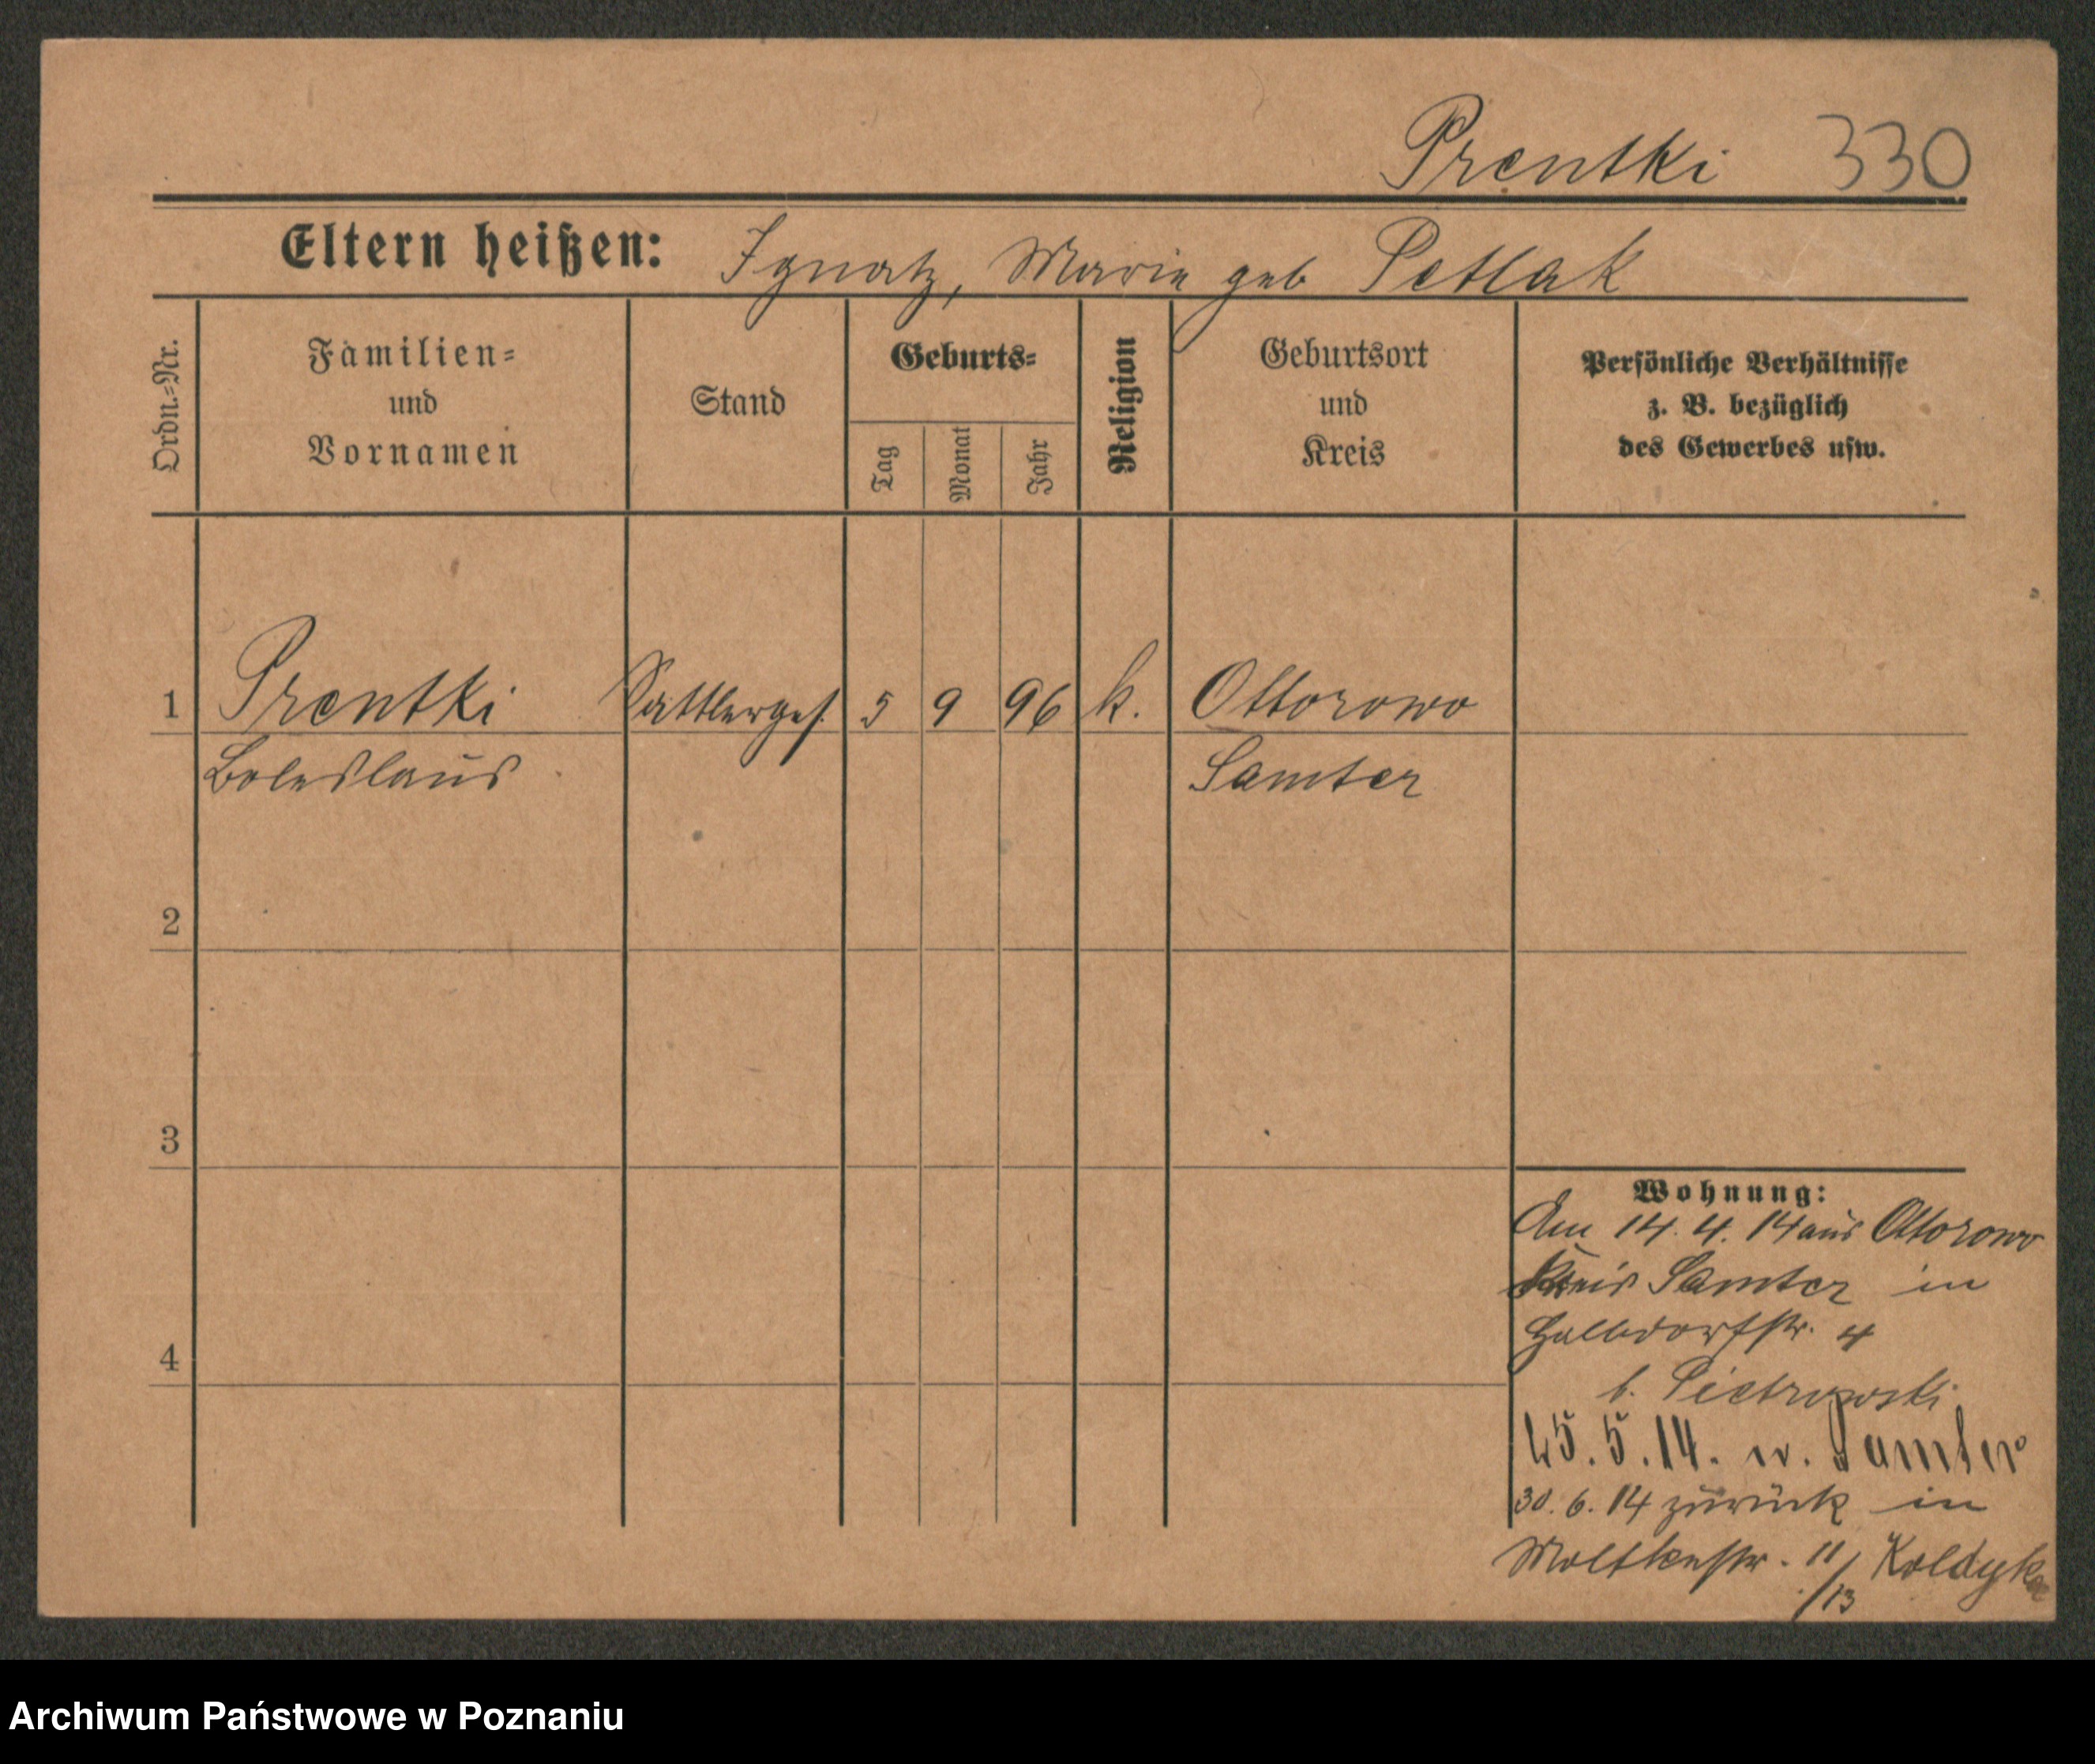 Prentki 330
Eltern heißen: Ignatz, Marie geb Petlak
Ordn.=Nr.
Familien=
und
Vornamen
Stand
Geburts=
Tag
Monat
Jahr
Religion
Geburtsort
und
Kreis
Persönliche Verhältnisse
z. B. bezüglich
des Gewerbes usw.
1 Prentki Sattlerges. 5 9 96 k. Ottorowo
Boleslaus Samter
2
3
4
Wohnung:
Am 14. 4. 14 aus Ottorowo
Kreis Samter in
Halbdorfstr. 4
b. Pietrowski
25. 5. 14. n. Samter
30. 6. 14 zurück in
Moltkestr. 11/13 Koldyka
Archiwum Państwowe w Poznaniu